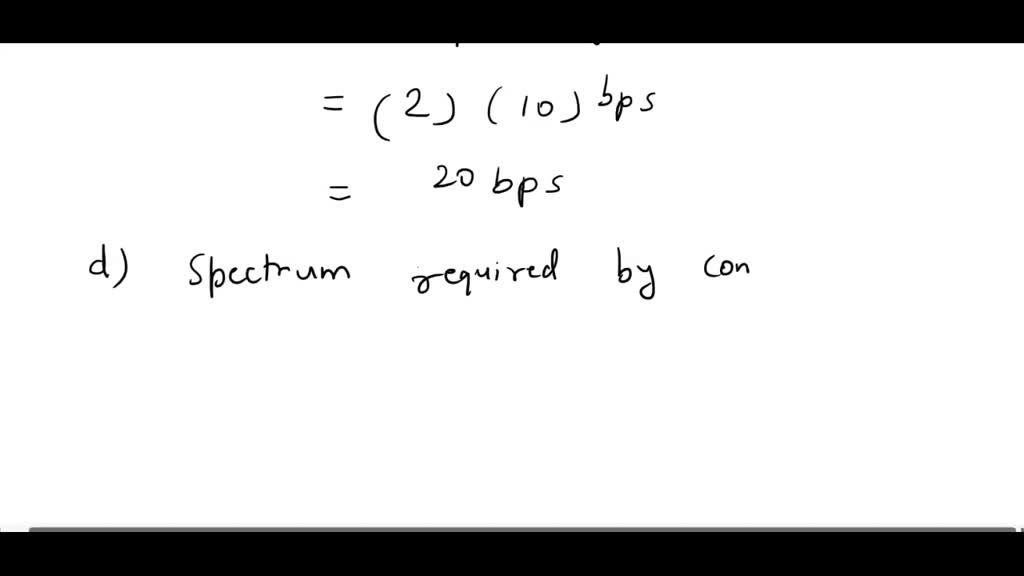 = (2) (10) bps
= 20 bps
d) Spectrum required by con